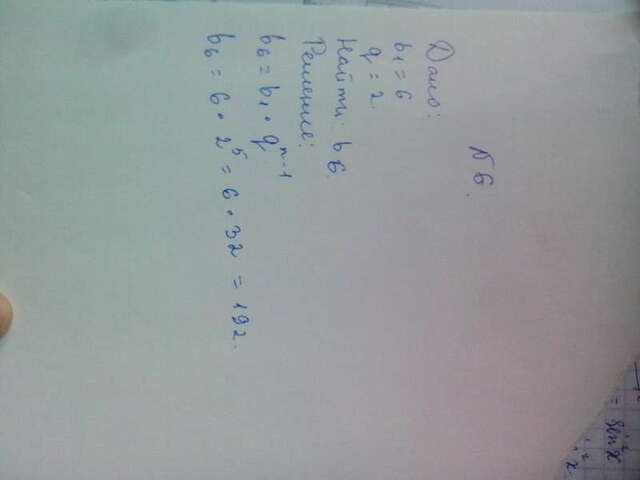 №6.
Дано:
b₁ = 6
q = 2.
Найти: b₆.
Решение:
b₆ = b₁ · qⁿ⁻¹
b₆ = 6 · 2⁵ = 6 · 32 = 192.
= sin²x